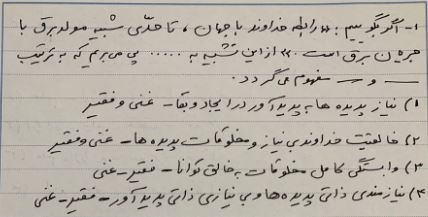 ۱- اگر بگوییم: «رابطه خداوند با جهان، تا حدّی شبیه مولد برق با
جریان برق است.» از این تشبیه به ..... پی می‌بریم که به ترتیب
ــ و ــ مفهوم می‌گردد.
۱) نیاز پدیده ها به پدیدآور در ایجاد و بقا - غنی و فقیر
۲) خالقیت خداوند بی نیاز و مخلوقات پدیده ها - غنی و فقیر
۳) وابستگی کامل مخلوقات به خالق توانا - فقیر - غنی
۴) نیازمندی ذاتی پدیده ها و بی نیازی ذاتی پدیدآور - فقیر - غنی